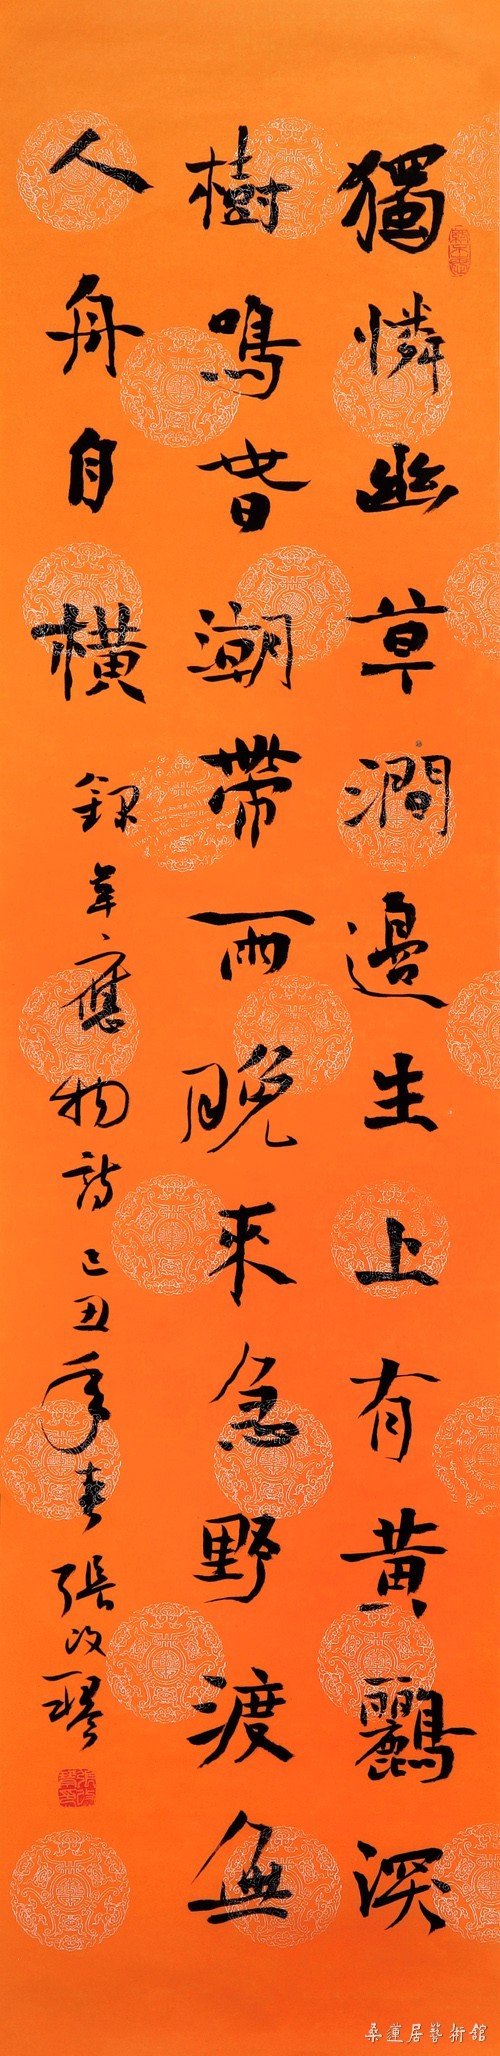 獨憐幽草澗邊生上有黃鸝深
樹鳴春潮帶雨晚來急野渡無
人舟自橫
錄韋應物詩己丑年春張改琴
桑蓮居藝術館